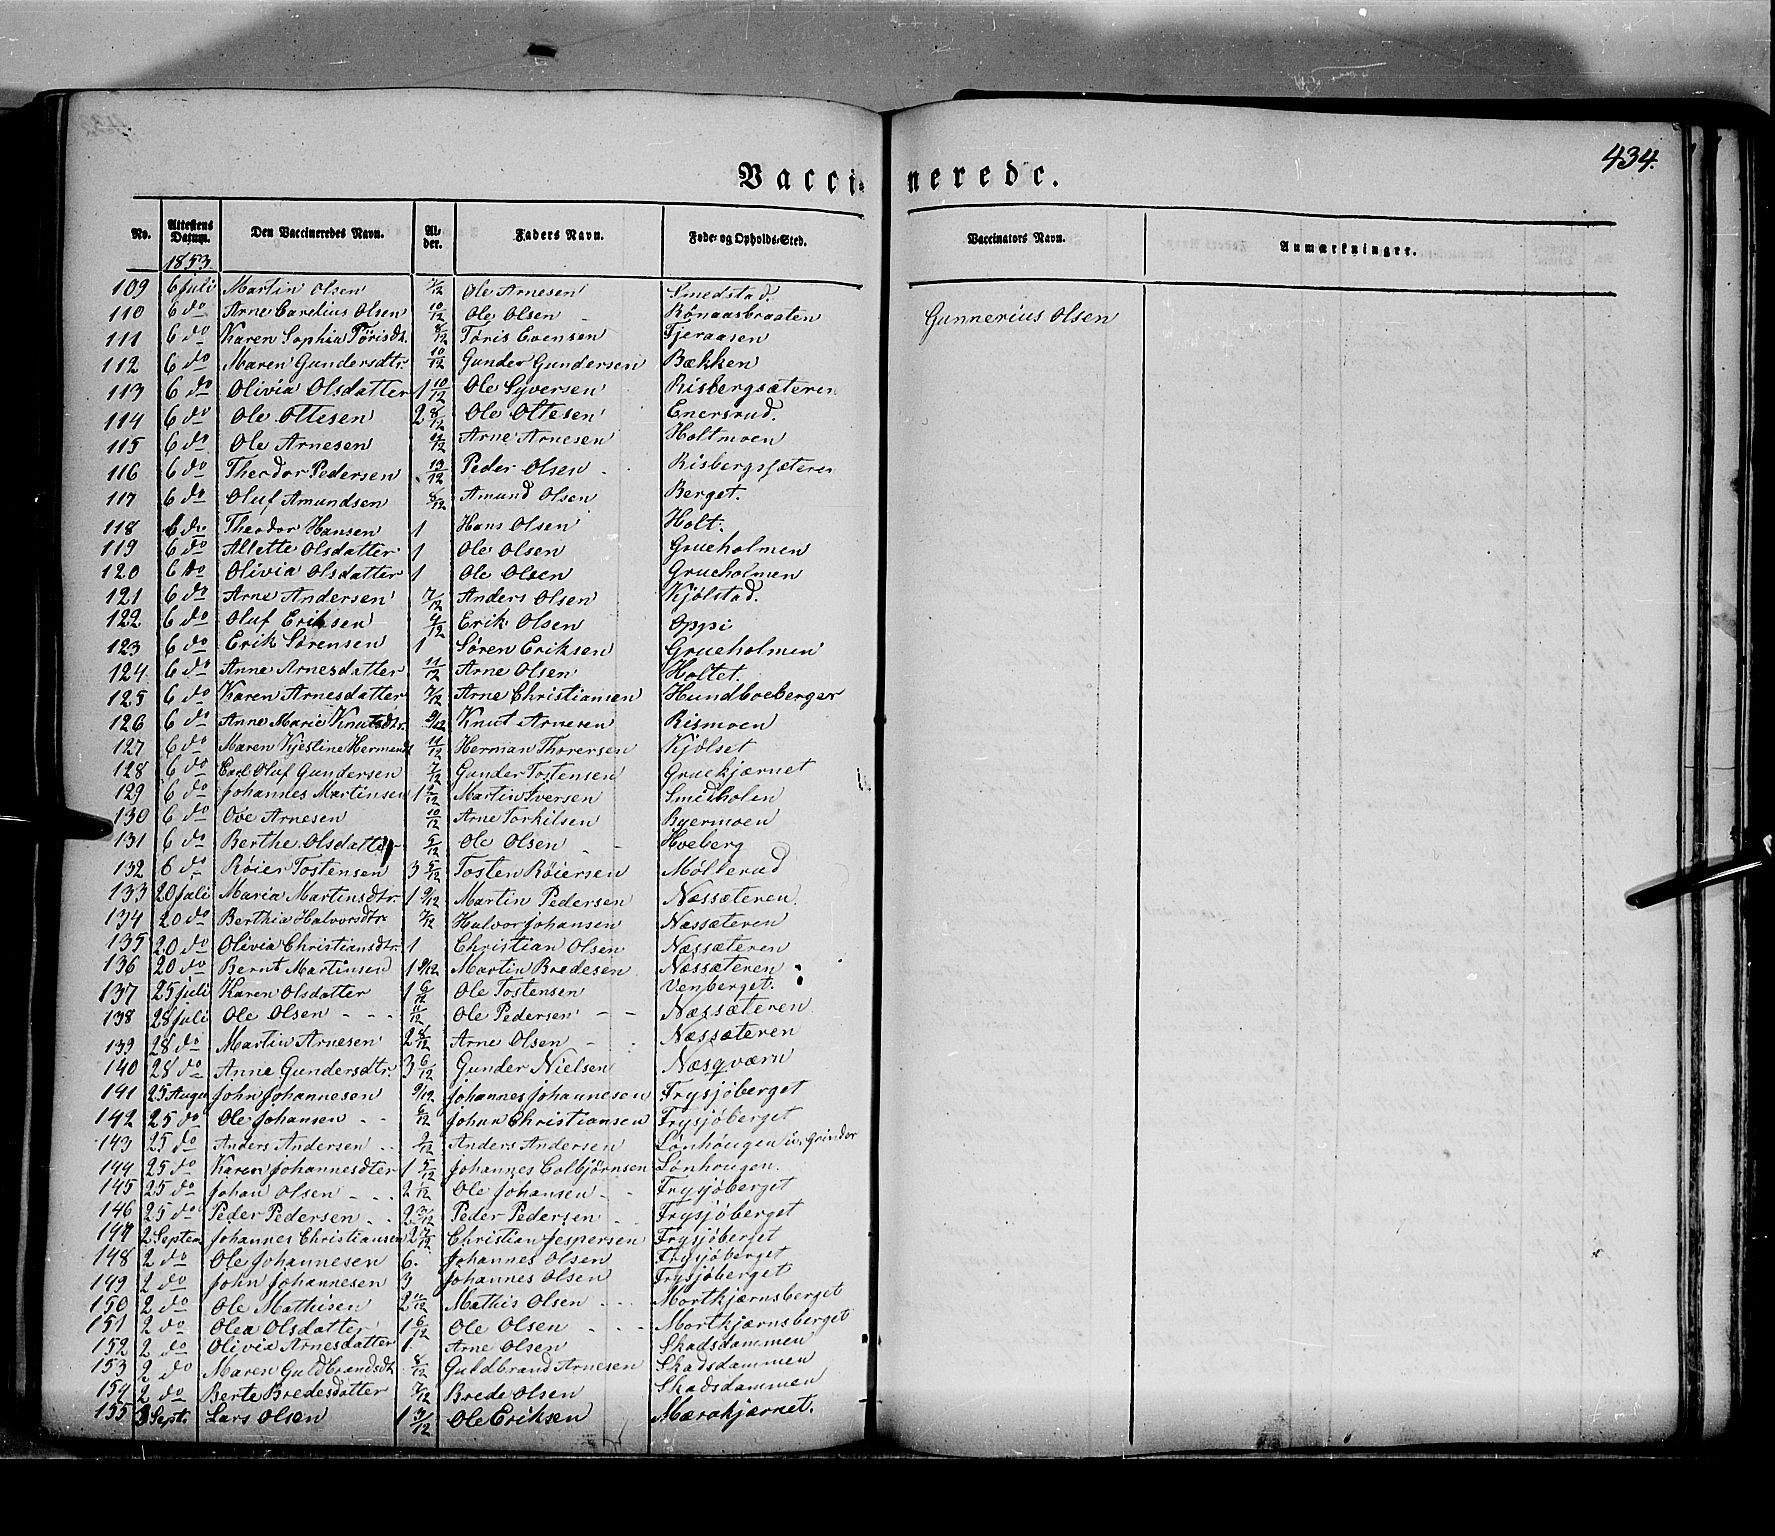 434.
Vaccinerede.
No. | Attestens Datum. | Den Vaccineredes Navn. | Alder. | Faders Navn. | Føde- og Opholds-Sted. | Vaccinators Navn. | Anmærkninger.
1853.
109 6 Juli Martin Olsen Ole Arnesen Smedstad.
110 6 do Arne Carelius Olsen 10/12 Ole Olsen Rønaasbraaten Gunnerius Olsen
111 6 do Karen Sophia Tørisdt. 8/12 Tøris Evensen Fjeraasen
112 6 do Maren Gundersdtr. 10/12 Gunder Gundersen Bækken
113 6 do Olivia Olsdatter 1 10/12 Ole Syversen Risbergsæteren
114 6 do Ole Ottesen 2 8/12 Ole Ottesen Enersrud.
115 6 do Ole Arnesen 11/12 Arne Arnesen Holtmoen
116 6 do Theodor Pedersen 13/12 Peder Olsen Risbergsæteren
117 6 do Oluf Amundsen 8/12 Amund Olsen Berget.
118 6 do Theodor Hansen 1 Hans Olsen Holt.
119 6 do Allette Olsdatter 1 Ole Olsen Grueholmen
120 6 do Olivia Olsdatter 1 Ole Olsen Grueholmen
121 6 do Arne Andersen 7/12 Anders Olsen Kjølstad.
122 6 do Oluf Eriksen 9/12 Erik Olsen Oppi
123 6 do Erik Sørensen 1 Søren Eriksen Grueholmen
124 6 do Anne Arnesdatter 11/12 Arne Olsen Holtet.
125 6 do Karen Arnesdatter 7/12 Arne Christiansen Hundboeberget
126 6 do Anne Marie Knutsdtr. 9/12 Knut Arnesen Rismoen
127 6 do Maren Kjestine Hermansd 11/12 Herman Thorersen Kjølset
128 6 do Carl Oluf Gundersen 7/12 Gunder Tostensen Gruekjærnet
129 6 do Johannes Martinsen 1 Martin Iversen Smedholen
130 6 do Ove Arnesen 10/12 Arne Torkilsen Byermoen
131 6 do Berthe Olsdatter 5/12 Ole Olsen Hveberg
132 6 do Røier Tostensen 3 5/12 Tosten Røiersen Møllerud
133 20 Juli Maria Martinsdtr. 1 9/12 Martin Pedersen Næssæteren
134 20 do Berthia Halvorsdtr. Halvor Johansen Næssæteren
135 20 do Olivia Christiansdtr. 1 Christian Olsen Næssæteren
136 20 do Bernt Martinsen 1 9/12 Martin Bredesen Næssæteren
137 25 Juli Karen Olsdatter 1 6/12 Ole Tostensen Venberget.
138 28 Juli Ole Olsen 11/12 Ole Pedersen Næssæteren
139 28 do Martin Arnesen 2 8/12 Arne Olsen Næssæteren
140 28 do Anne Gundersdtr. 3 6/12 Gunder Nielsen Næsqværn
141 25 Augu John Johannesen 9/12 Johannes Johannesen Frysjøberget
142 25 do Ole Johansen 6/12 Johan Christiansen Frysjøberget
143 25 do Anders Andersen 2/12 Anders Andersen Lønhougen u. Grinder
144 25 do Karen Johannesdter 1 5/12 Johannes Colbjørnsen Lønhougen.
145 25 do Johan Olsen 2 1/12 Ole Johansen Frysjøberget
146 25 do Peder Pedersen 2 3/12 Peder Pedersen Frysjøberget
147 2 Septem Johannes Christiansen 2 7/12 Christian Jespersen Frysjøberget
148 2 do Ole Johannesen 6. Johannes Olsen Frysjøberget
149 2 do John Johannesen 3 Johannes Olsen Frysjøberget
150 2 do Ole Mathisen 2 11/12 Mathis Olsen Mortkjærnsberget
151 2 do Olea Olsdatter 1 6/12 Ole Olsen Mortkjærnsberget
152 2 do Olivia Arnesdatter 1 Arne Olsen Skadsdammen
153 2 do Maren Guldbrandsdt. 8/12 Guldbrand Arnesen Skadsdammen
154 2 do Berte Bredesdatter 7/12 Brede Olsen Skadsdammen
155 3 Sept. Lars Olsen 1 3/12 Ole Eriksen Mærakjærnet.